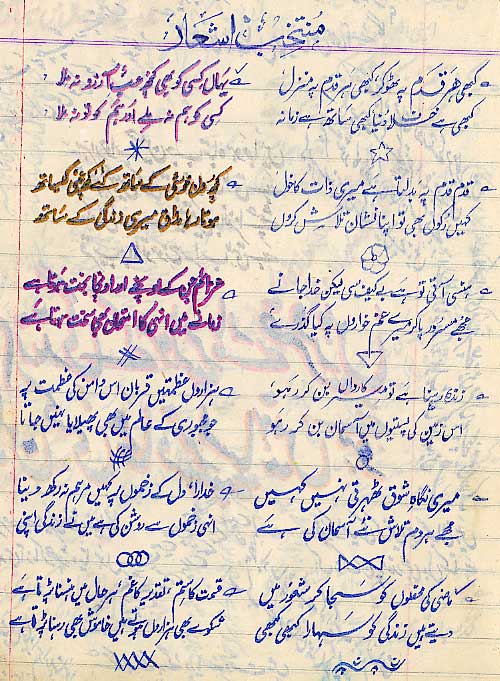 منتخب اشعار
کبھی ہر قدم پہ ٹھوکر کبھی ہر قدم پہ منزل
کبھی ہے خفا دنیا کبھی ساتھ ہے زمانہ
یہاں کسی کو بھی کچھ حسب آرزو نہ ملا
کسی کو ہم نہ ملے اور ہم کو تو نہ ملا
قدم قدم پہ بدلتا ہے میری ذات کا خول
کہیں رکوں بھی تو اپنا نشان تلاش کروں
کچھ دن خوشی کے ساتھ کٹے کچھ غمی کیساتھ
ہوتا رہا مذاق میری زندگی کے ساتھ
ہنسی آتی تو ہے بے کیف سی لیکن خدا جانے
مجھے مسرور پا کر میرے غم خواروں پہ کیا گذرے
عزائم جن کے اونچے اور اونچا بخت ہوتا ہے
زمانے میں انہی کا امتحان بھی سخت ہوتا ہے
زندہ رہنا ہے تو میر کارواں بن کر رہو
اس زمین کی پستیوں میں آسمان بن کر رہو
ہزاروں عظمتیں قربان اس دامن کی عظمت پہ
جو مجبوری کے عالم میں بھی پھیلایا نہیں جاتا
میری نگاہِ شوق ٹھہرتی نہیں کہیں
مجھے ہر دم تلاش نئے آسمان کی ہے
خدارا، دل کے زخموں پہ کہیں مرہم نہ رکھ دینا
انہی زخموں سے روشن کی ہے میں نے زندگی اپنی
ماضی کی محفلوں کو سجا کر شعور میں
دیتے ہیں زندگی کو سہارا کبھی کبھی
قسمت کا ستم، تقدیر کا غم ہر حال میں ہنسنا پڑتا ہے
شکوے بھی ہزاروں ہوتے ہیں خاموش بھی رہنا پڑتا ہے